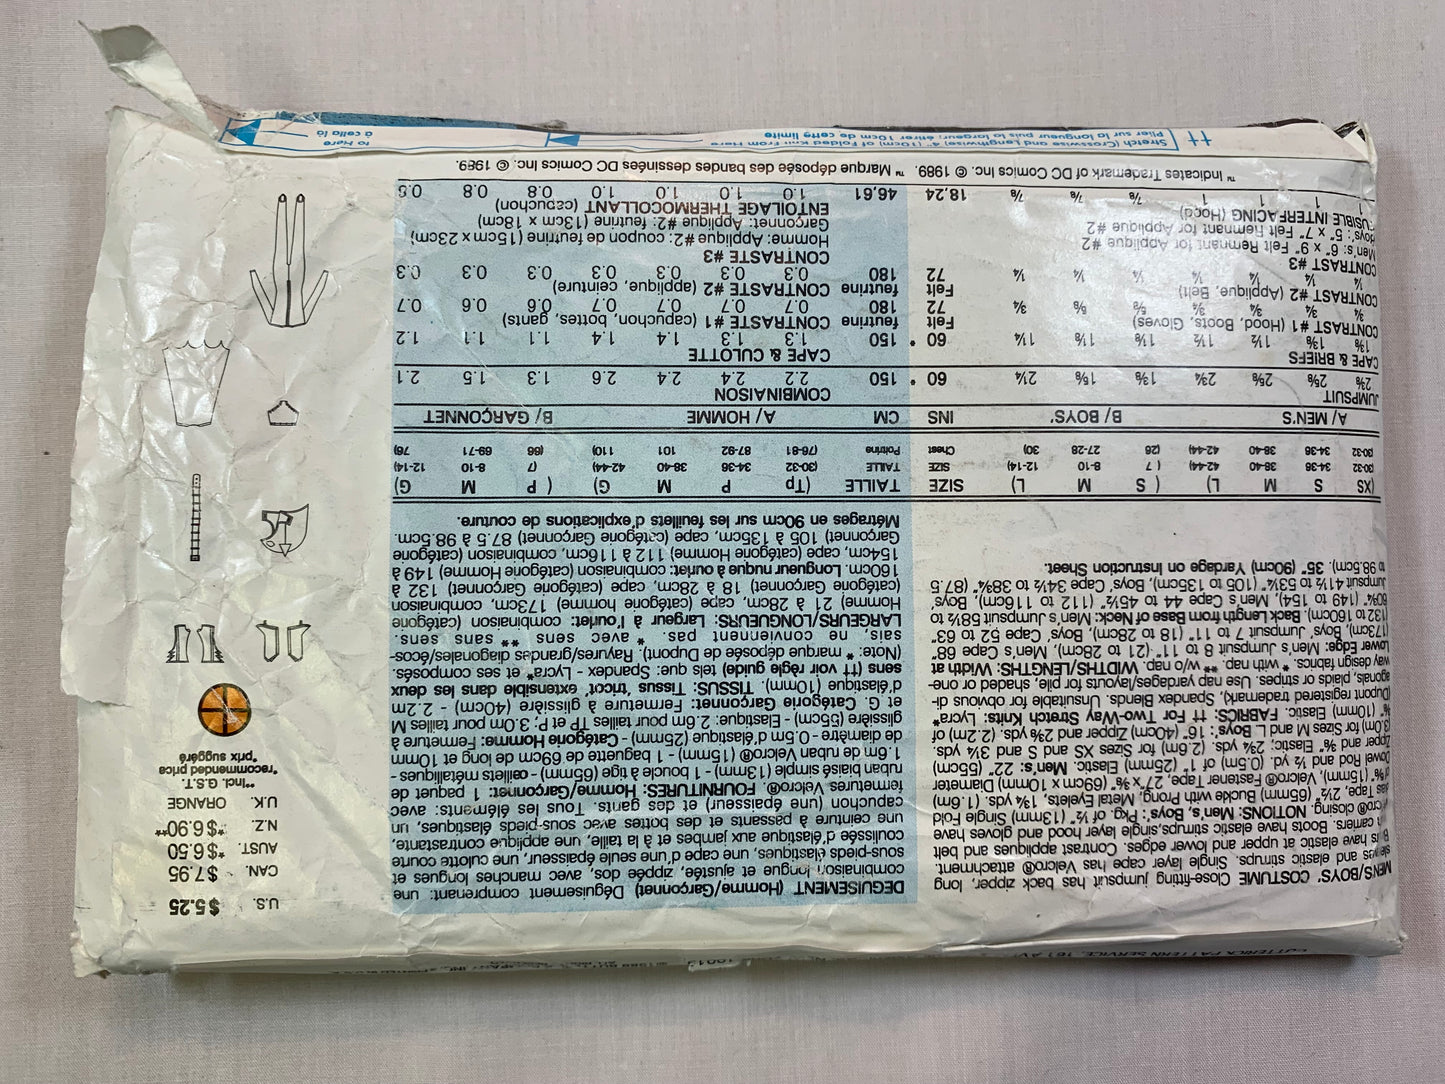 BUTTERICK PATTERN SERVICE, 161 AV
MEN'S/BOYS' COSTUME Close-fitting jumpsuit has back zipper, long
and elastic stirrups. Single layer cape has Velcro® attachment.
have elastic at upper and lower edges. Contrast appliques and belt
carriers. Boots have elastic stirrups, single layer hood and gloves have
closing. NOTIONS: Men's, Boys': Pkg. of ½" (13mm) Single Fold
Tape, 2½" (65mm) Buckle with Prong, Metal Eyelets, 1¾ yds. (1.6m)
⅝" (15mm), Velcro® Fastener Tape, 27"x ⅜" (69cm x 10mm) Diameter
Dowel Rod and ½ yd. (0.5m) of 1" (25mm) Elastic. Men's: 22" (55cm)
Zipper and ⅜" Elastic; 2¾ yds. (2.6m) for Sizes XS and S and 3¼ yds.
(3.0m) for Sizes M and L. Boys': 16" (40cm) Zipper and 2⅜ yds. (2.2m) of
⅜" (10mm) Elastic. FABRICS: †† For Two-Way Stretch Knits: Lycra*
(Dupont registered trademark), Spandex Blends. Unsuitable for obvious di-
agonals, plaids or stripes. Use nap yardages/layouts for pile, shaded or one-
way design fabrics. * with nap. ** w/o nap. WIDTHS/LENGTHS: Width at
Lower Edge: Men's Jumpsuit 8 to 11" (21 to 28cm), Men's Cape 68"
(173cm), Boys' Jumpsuit 7 to 11" (18 to 28cm), Boys' Cape 52 to 63"
(132 to 160cm). Back Length from Base of Neck: Men's Jumpsuit 58½ to
60¾" (149 to 154), Men's Cape 44 to 45½" (112 to 116cm), Boys'
Jumpsuit 41½ to 53¼" (105 to 135cm), Boys' Cape 34½ to 38¾" (87.5
to 98.5cm). 35" (90cm) Yardage on Instruction Sheet.
DEGUISEMENT (Homme/Garçonnet) Déguisement comprenant: une
combinaison longue et ajustée, zippée dos, avec manches longues et
sous-pieds élastiques, une cape d'une seule épaisseur, une culotte courte
coulissée d'élastique aux jambes et à la taille, une applique contrastante,
une ceinture à passants et des bottes avec sous-pieds élastiques, un
capuchon (une épaisseur) et des gants. Tous les éléments: avec
fermetures Velcro®. FOURNITURES: Homme/Garçonnet: 1 paquet de
ruban biaisé simple (13mm) - 1 boucle à tige (65mm) - œillets métalliques -
1.6m de ruban Velcro® (15mm) - 1 baguette de 69cm de long et 10mm
de diamètre - 0.5m d'élastique (25mm) - Catégorie Homme: Fermeture à
glissière (55cm) - Elastique: 2.6m pour tailles TP et P; 3.0m pour tailles M
et G. Catégorie Garçonnet: Fermeture à glissière (40cm) - 2.2m
d'élastique (10mm). TISSUS: Tissus 'tricot' extensible dans les deux
sens (†† voir règle guide) tels que: Spandex - Lycra* et ses composés.
(Note: * marque déposée de Dupont). Rayures/grandes diagonales/écos-
sais, ne conviennent pas. * avec sens ** sans sens.
LARGEURS/LONGUEURS: Largeur à l'ourlet: combinaison (catégorie
Homme) 21 à 28cm, cape (catégorie homme) 173cm, combinaison
(catégorie Garçonnet) 18 à 28cm, cape (catégorie Garçonnet) 132 à
160cm. Longueur nuque à ourlet: combinaison (catégorie Homme) 149 à
154cm, cape (catégorie Homme) 112 à 116cm, combinaison (catégorie
Garçonnet) 105 à 135cm, cape (catégorie Garçonnet) 87.5 à 98.5cm.
Métrages en 90cm sur les feuillets d'explications de couture.
U.S. $5.25
CAN. $7.95
AUST. *$6.50
N.Z. *$6.90**
U.K. ORANGE
**incl. G.S.T.
*recommended price
*prix suggéré
(XS S M L) ( S M L) SIZE TAILLE (Tp P M G) ( P M G)
(30-32 34-36 38-40 42-44) ( 7 8-10 12-14) SIZE TAILLE (30-32) 34-36 38-40 42-44) (7 8-10 12-14)
34-36 38-40 42-44) (26 27-28 30) Chest Poitrine (76-81 87-92 101 110) (66 69-71 76)
A/ MEN'S B/ BOYS' INS CM A/ HOMME B/ GARÇONNET
JUMPSUIT COMBINAISON
2⅜ 2⅝ 2⅝ 2¾ 1⅜ 1⅝ 2¼ 60 * 150 2.2 2.4 2.4 2.6 1.3 1.5 2.1
CAPE & BRIEFS CAPE & CULOTTE
1⅜ 1⅜ 1½ 1½ 1⅛ 1⅛ 1¼ 60 * 150 1.3 1.3 1.4 1.4 1.1 1.1 1.2
CONTRAST #1 (Hood, Boots, Gloves) Felt feutrine CONTRASTE #1 (capuchon, bottes, gants)
¾ ¾ ¾ ¾ ⅝ ⅝ ¾ 72 180 0.7 0.7 0.7 0.7 0.6 0.6 0.7
CONTRAST #2 (Applique, Belt) Felt feutrine CONTRASTE #2 (applique, ceinture)
¼ ¼ ¼ ¼ ¼ ¼ ¼ 72 180 0.3 0.3 0.3 0.3 0.3 0.3 0.3
CONTRAST #3 CONTRASTE #3
Men's: 6" x 9" Felt Remnant for Applique #2 Homme: Applique #2: coupon de feutrine (15cm x 23cm)
Boys': 5" x 7" Felt Remnant for Applique #2 Garçonnet: Applique #2: feutrine (13cm x 18cm)
FUSIBLE INTERFACING (Hood) ENTOILAGE THERMOCOLLANT (capuchon)
1 1 1 1 ⅞ ⅞ ⅞ 18,24 46,61 1.0 1.0 1.0 1.0 0.8 0.8 0.8
™ Indicates Trademark of DC Comics Inc. © 1989. ™ Marque déposée des bandes dessinées DC Comics Inc. © 1989.
†† Stretch (Crosswise and Lengthwise) 4" (10cm) of Folded Knit From Here to Here
Plier sur la longueur puis la largeur, étirer 10cm de cette limite à celle là